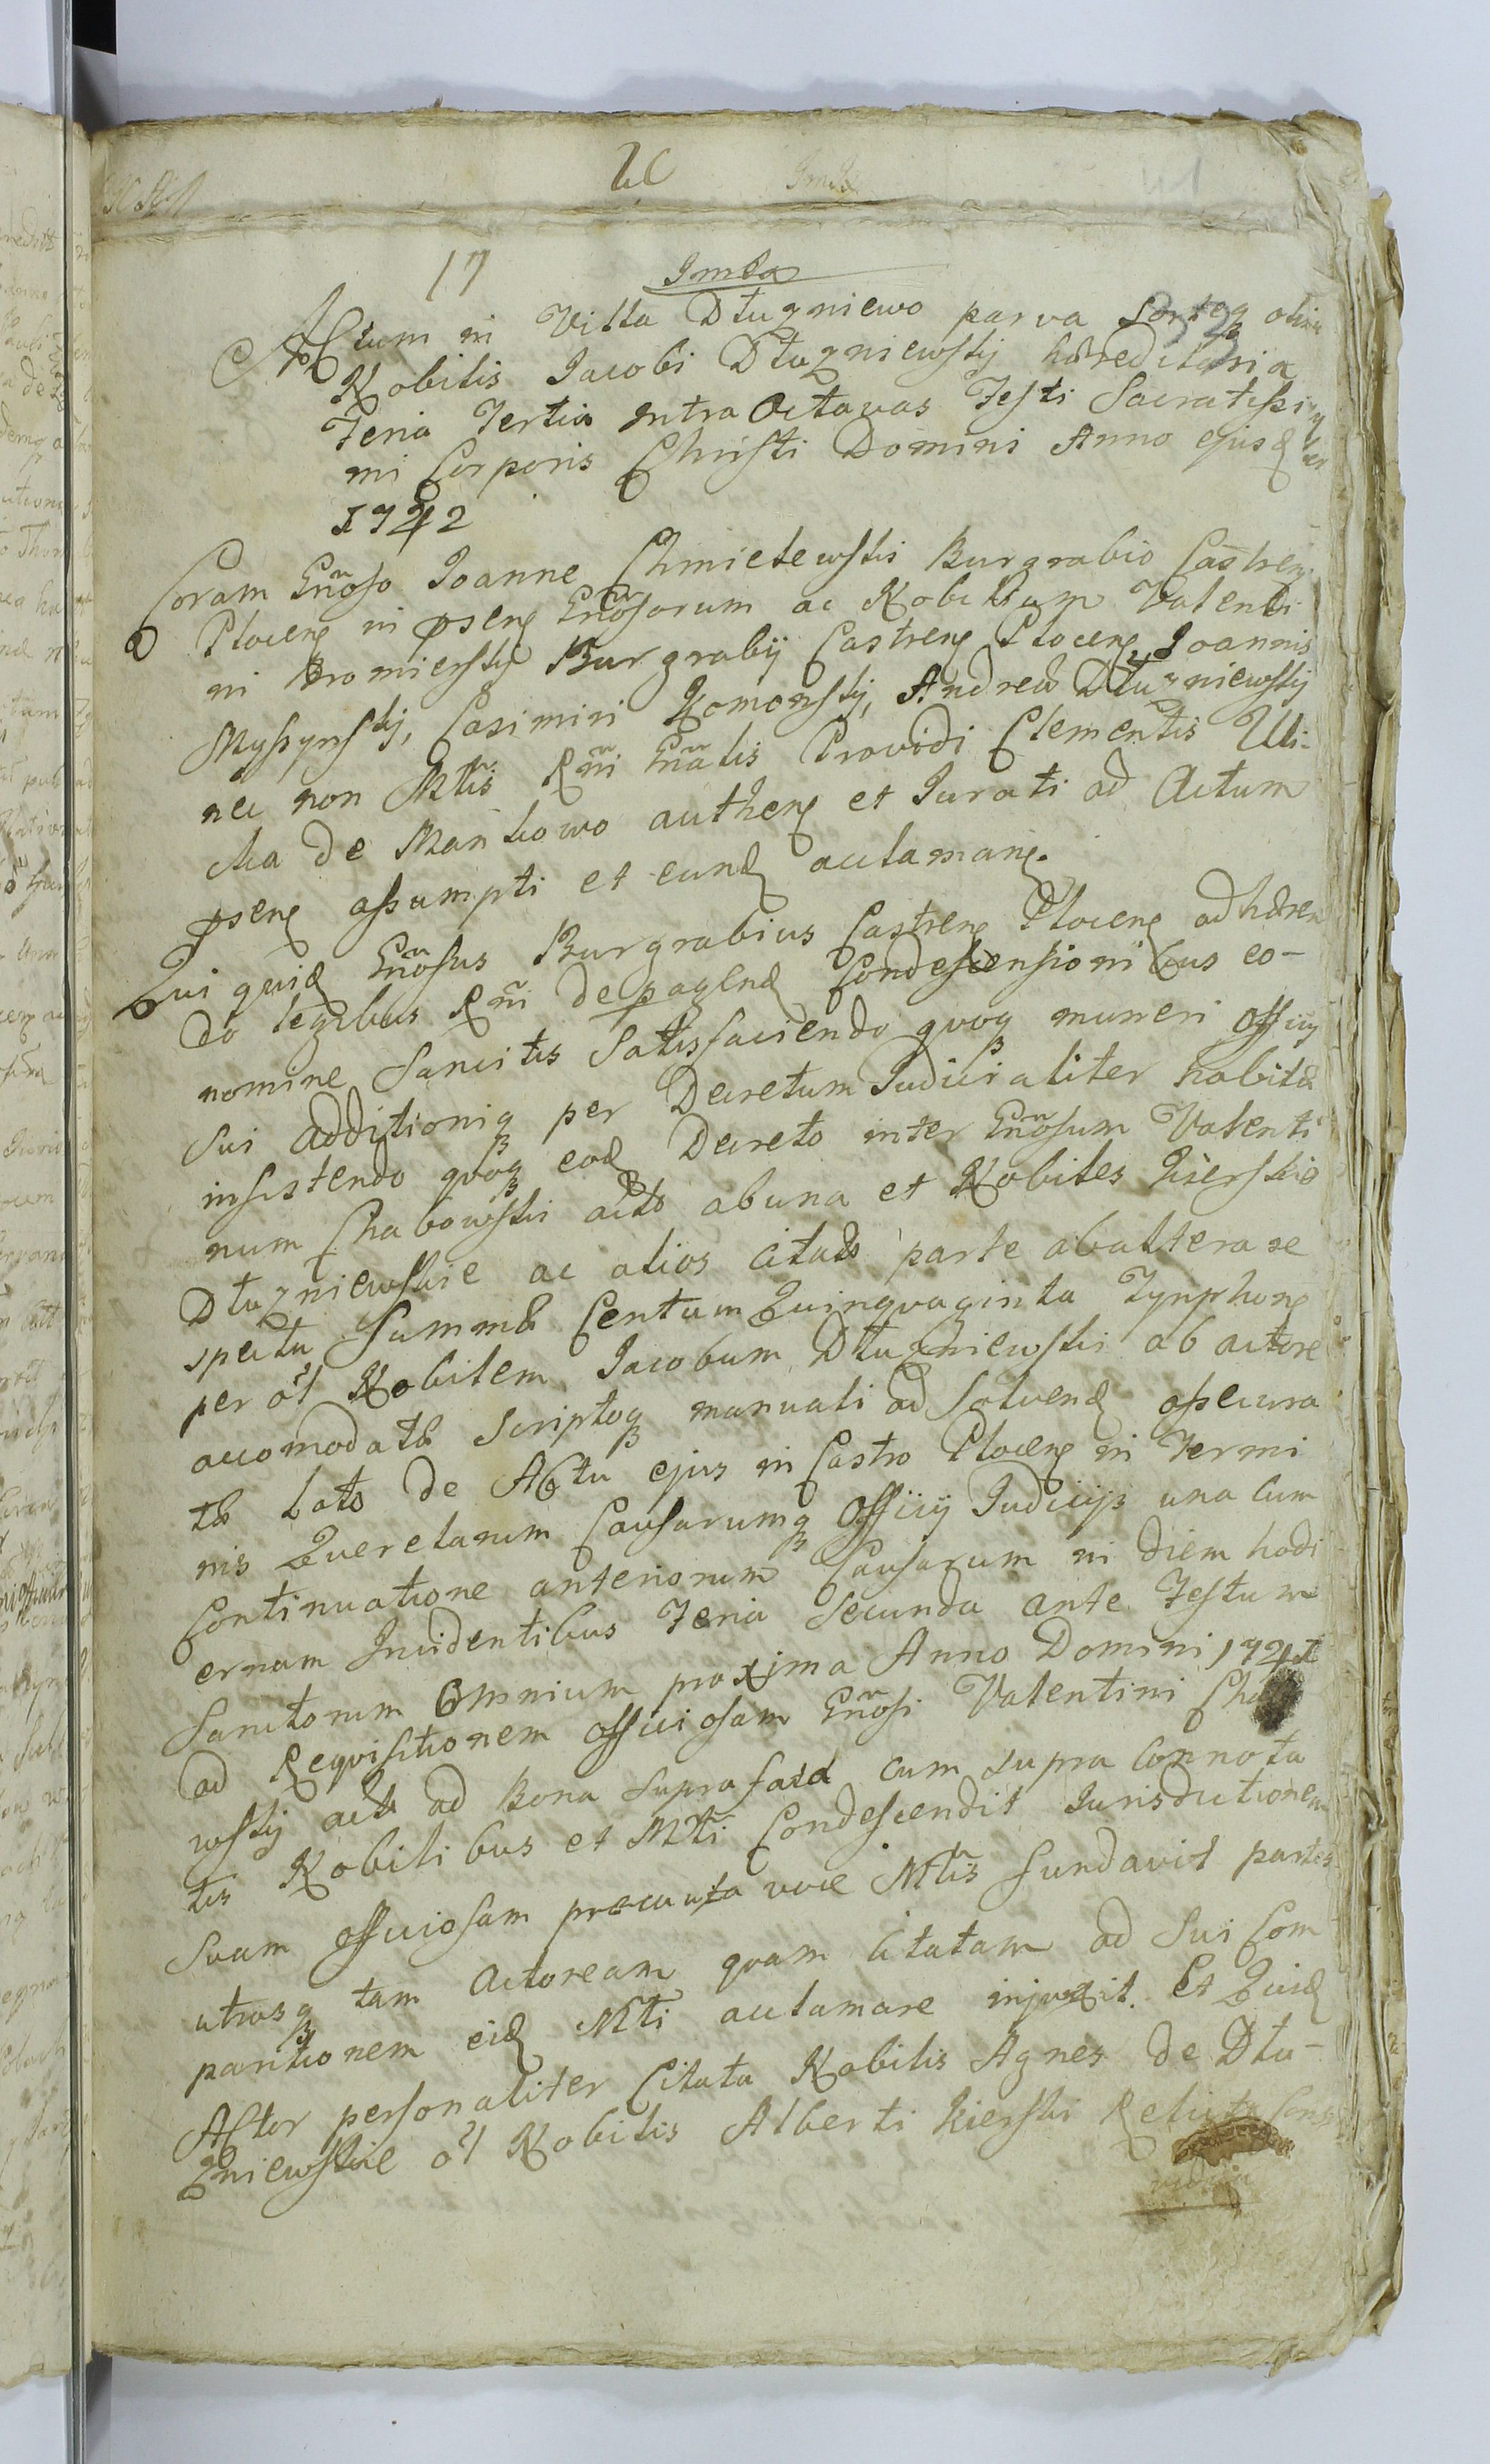 17
Actum in Villa Dłuzniewo parva Sorteq olim
Nobilis Jacobi Dłuzniewskij hæreditaria
Feria Tertia intra Octavas Festi Sacratissi
mi Corporis Christi Domini Anno ejusd
1742
Coram Gnoso Joanne Chmielewski Burgrabio Castren
Plocen in psen Gnosorum ac Nobilium Valenti
ni Bromierskij Burgrabij Castren Plocen Joannis
Myszynskij, Casimiri Romonskij, Andreæ Dłuzniewskij
nec non Mtis Rni Gnalis Providi Clementis Uli-
cka de Mankowo authen et Jurati ad Actum
psen assumpti et eund aclaman.
Qui quid Gnosus Burgrabius Castren Plocen adhæren
do legibus Rni de pagend Condescensionibus eo-
nomine Sancitis Satisfaciendo quoq muneri Officij
sui additioniq per Decretum Judicialiter habitæ
insistendo quoq eod Decreto inter Gnosum Valenti
num Chabowski acto ab una et Nobiles Kierskie
Dłuzniewskie ac alios citatos parte ab altera re
spectu Summæ Centum Quinquaginta Tynphon
per ol Nobilem Jacobum Dłuzniewski ab actore
accomodatæ Scriptoq manuali ad Solvend assecura
tæ Lato de Actu ejus in Castro Plocen in Termi
nis Querelarum Causarumq Officij Judicijs una cum
Continuatione anteriorum Causarum in diem hodi
ernam Incidentibus Feria Secunda ante Festum
Sanctorum Omnium proxima Anno Domini 1741
ad Requisitionem officiosam Gnosi Valentini
wskij acti ad Bona Supra fata cum supra Connota
tis Nobilibus et Mtli Condescendit Jurisdictionem
Suam officiosam præcunta voce Mtlis fundavit partes
utrasq tam Actoream quam Citatam ad Sui Com
paritionem eid Mtli aclamare injunxit. Et Quid
Actor personaliter Citata Nobilis Agnes de Dłu-
zniewskie ol Nobilis Alberti Kierski Relicta